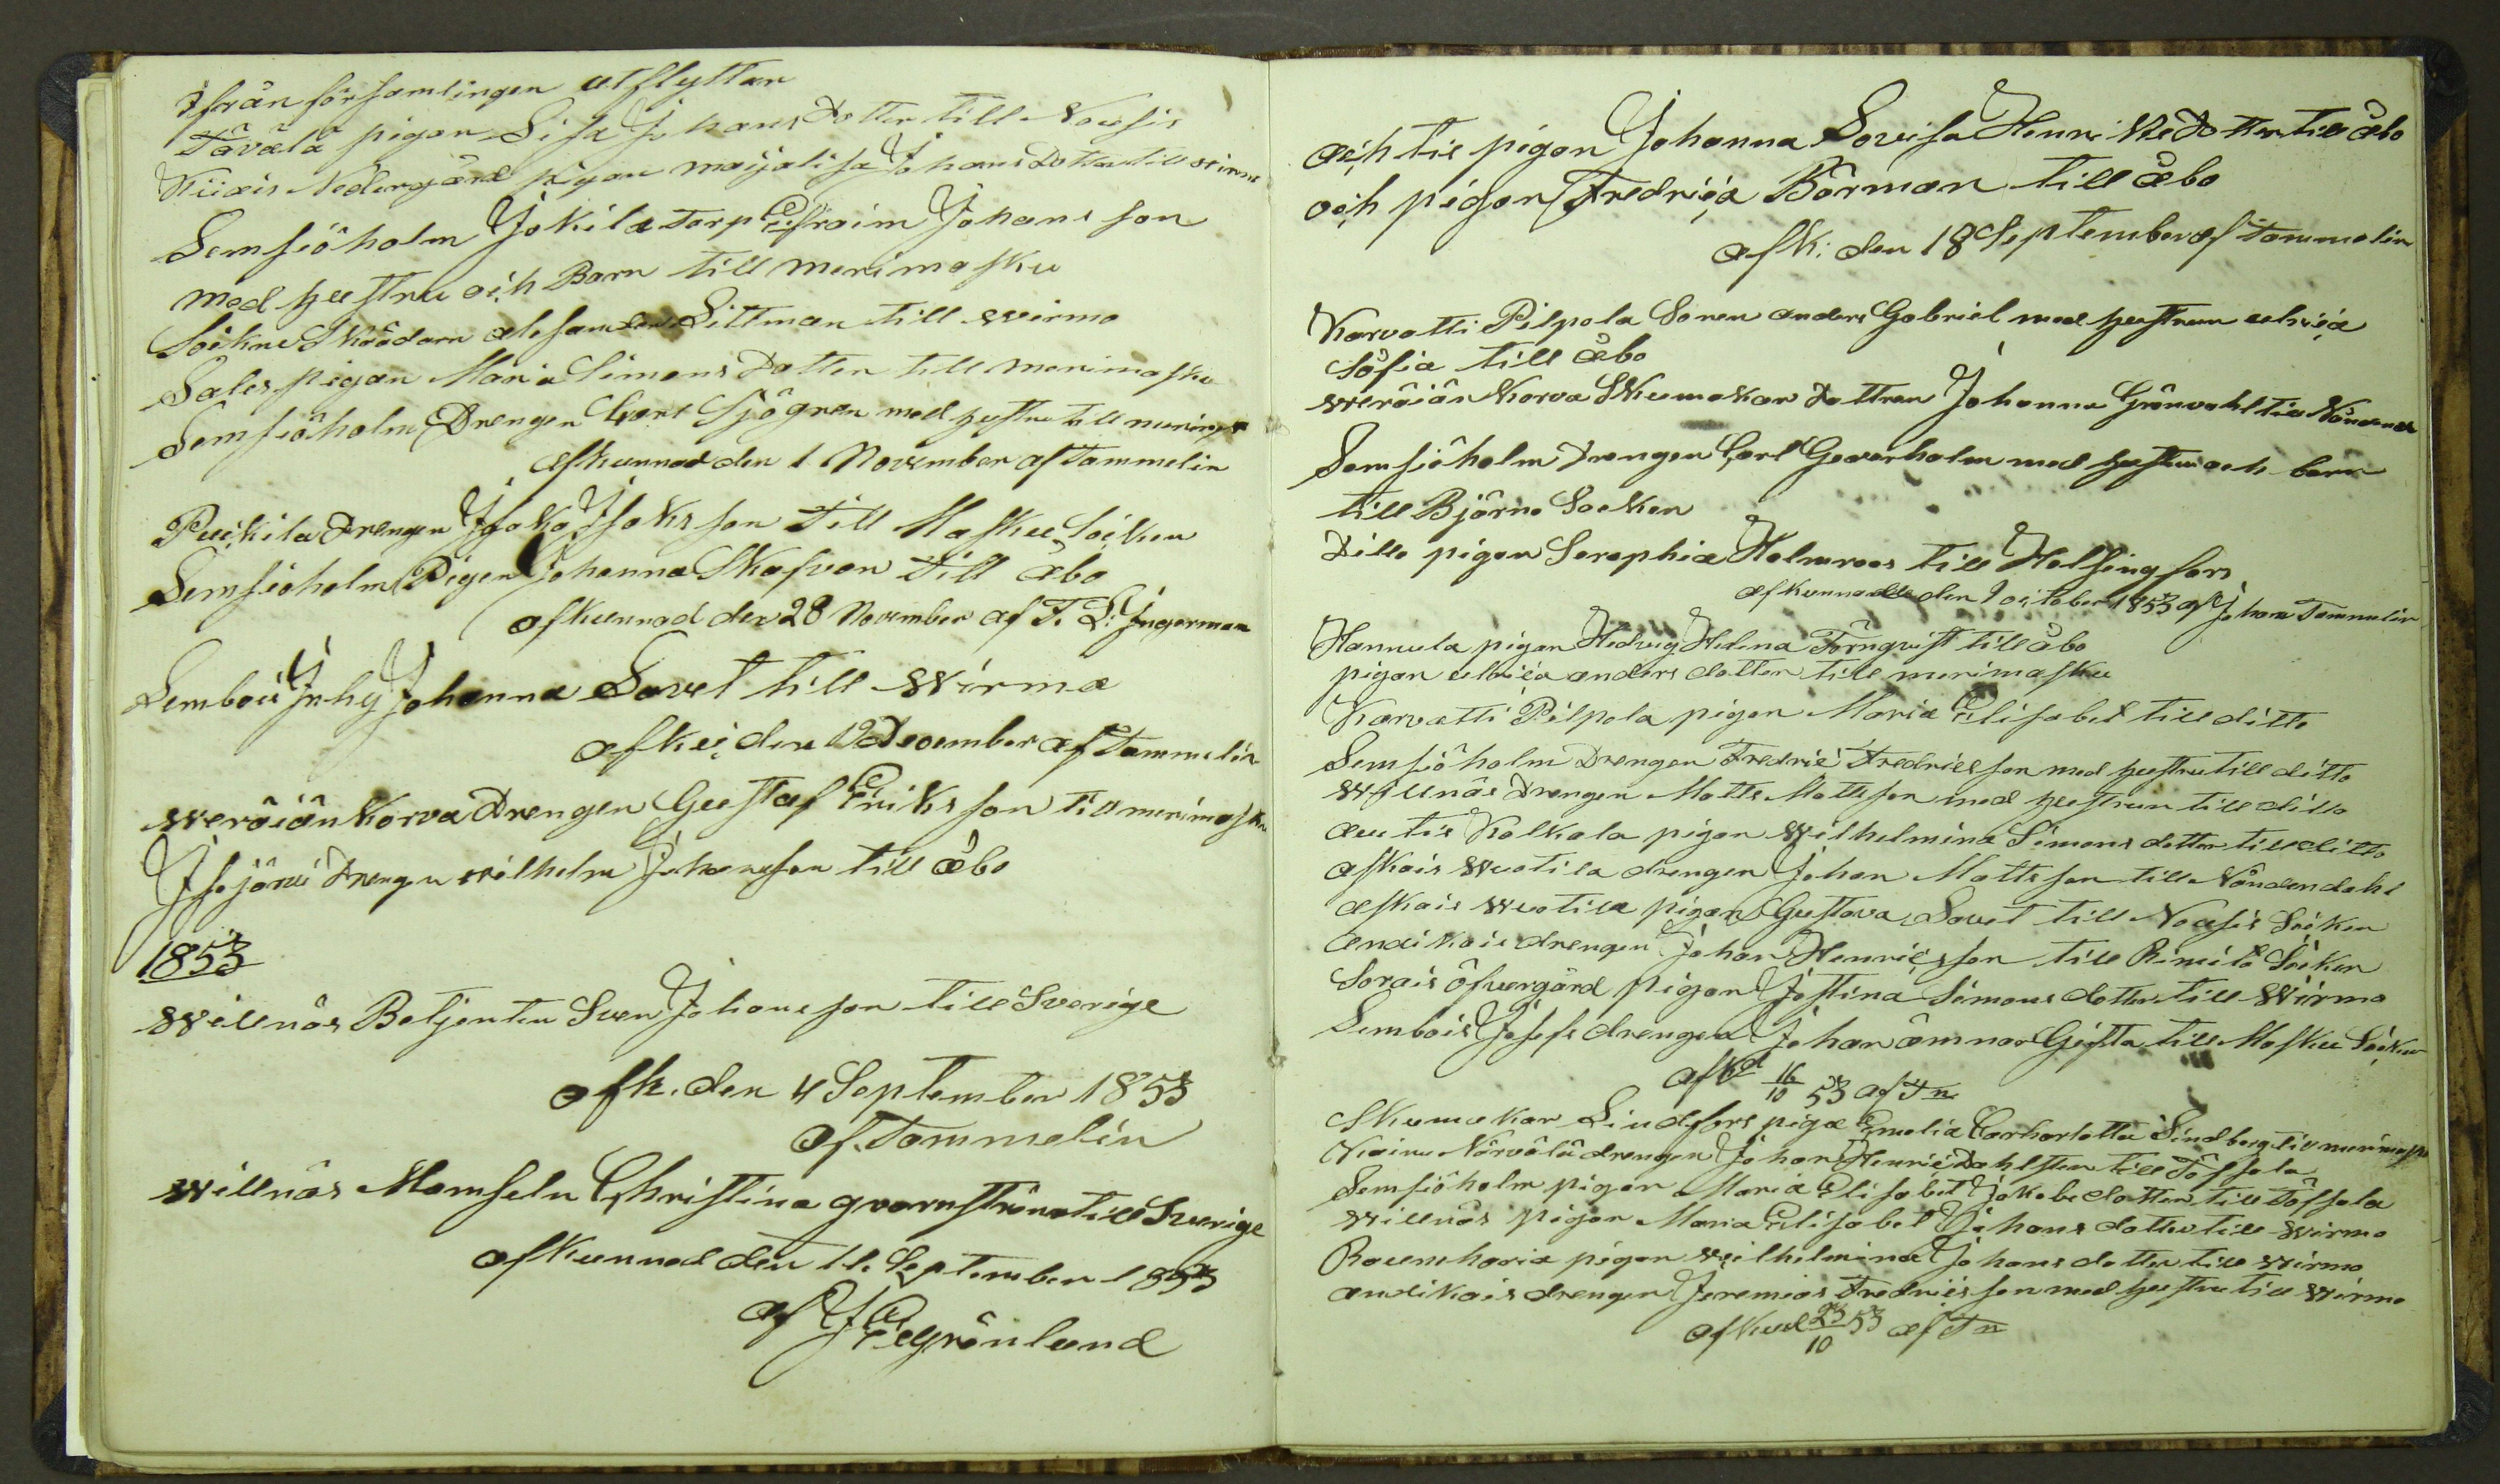 Ifrån församlingen utflyttar
Tavala pigan Lisa Johans Dotter till Nousis
Kiiais Nedergård pigan majalisa Johans Dotter till wirmo
Lemsiöholm Jokila Torp Efraim Johansson
med hustru och Barn till merimasku
Sokne Skrädarn alexander Littman till wirmo
Sales pigan Maria Simons Dotter till merimasku
Lemsiöholm Drengen Carl Sjögren med hustru till merim
afkunnad den 1 November af Tammelin
Puckila Drengen Isak Isaksson till Masku Socken
Lemsioholm Pigen Johanna Skafvan till åbo
afkunnad den 28 November af F. L: Ingerman
Lembois Inhy Johanna Savet till Wirma
afku; den 19 December af Tammelin
weräiänkorva Drengen Gustaf Eriksson till merimasku
Isojärvi Drengen wilhelm Johansson till åbo
1853
willnäs Betjenten Sven Johansson till Sverige
afk. den 4 September 1853
af. Tammelin
willnäs Mamseln Christina qvarnström till Sverige
afkunnad den 11. September 1853
af J E Grönlund
och til pigan Johanna Lovisa Henriks Dotter till åbo
och pigan Fredrica Bôrman till åbo
afk: den 18 September af Tammelin
Karvatti Pilpola Sonen anders Gabriel med hustrun ulrica
Sofia till åbo
weräiän Korva Skumakar Dottren Johanna Grönvahl till Nåndendal
Lemsiöholm Drengen Carl Gewerholm med hustru och barn
till Bjärno Socken
Ditto pigan Seraphia Holmroos till Helsingfors
afkunnade den 9 october 1853 af Johan Tammelin
Hannula pigan Hedvig Helena Törnqvist till åbo
pigan ulrica anders dotter till merimasku
Karvatti Pilpola pigan Maria Elisabet till ditto
Lemsiöholm Drengen Fredric Fredricsson med hustru till ditto
willnäs Drengen Matts Mattsson med hustrun till ditto
autis Kalkala pigan Wilhelmina Simons dotter till ditto
askais Wuotila drengen Johan Mattsson till Nåndendahl
askais Wuotila pigan Gustava Savet till Nousis Socken
andikais drengen Johan Henricsson till Rimito Socken
Sorais öfvergård pigan Justina Simons dotter till Wirmo
Lembois Josefs drengen Johan ämnar Gifta till Masku Socken
afkd 16/10 53 af Tn
Skumakar Lindfors piga Emelia Carharlotta Lindberg till merimasku
Kairu Närvälä drengen Johan Henric Dahlsten till Töfsala
Lemsiöholm pigan Maria Elisabet Jakobs dotter till Töfsala
willnäs pigan Maria Elisabet Johans dotter till Wirmo
Raumkaria pigan wilhelmina Johans dotter till Wirmo
andikais drengen Jeremias Fredricsson med hustru till Wirmo
afkud 23/10 53 af Tn